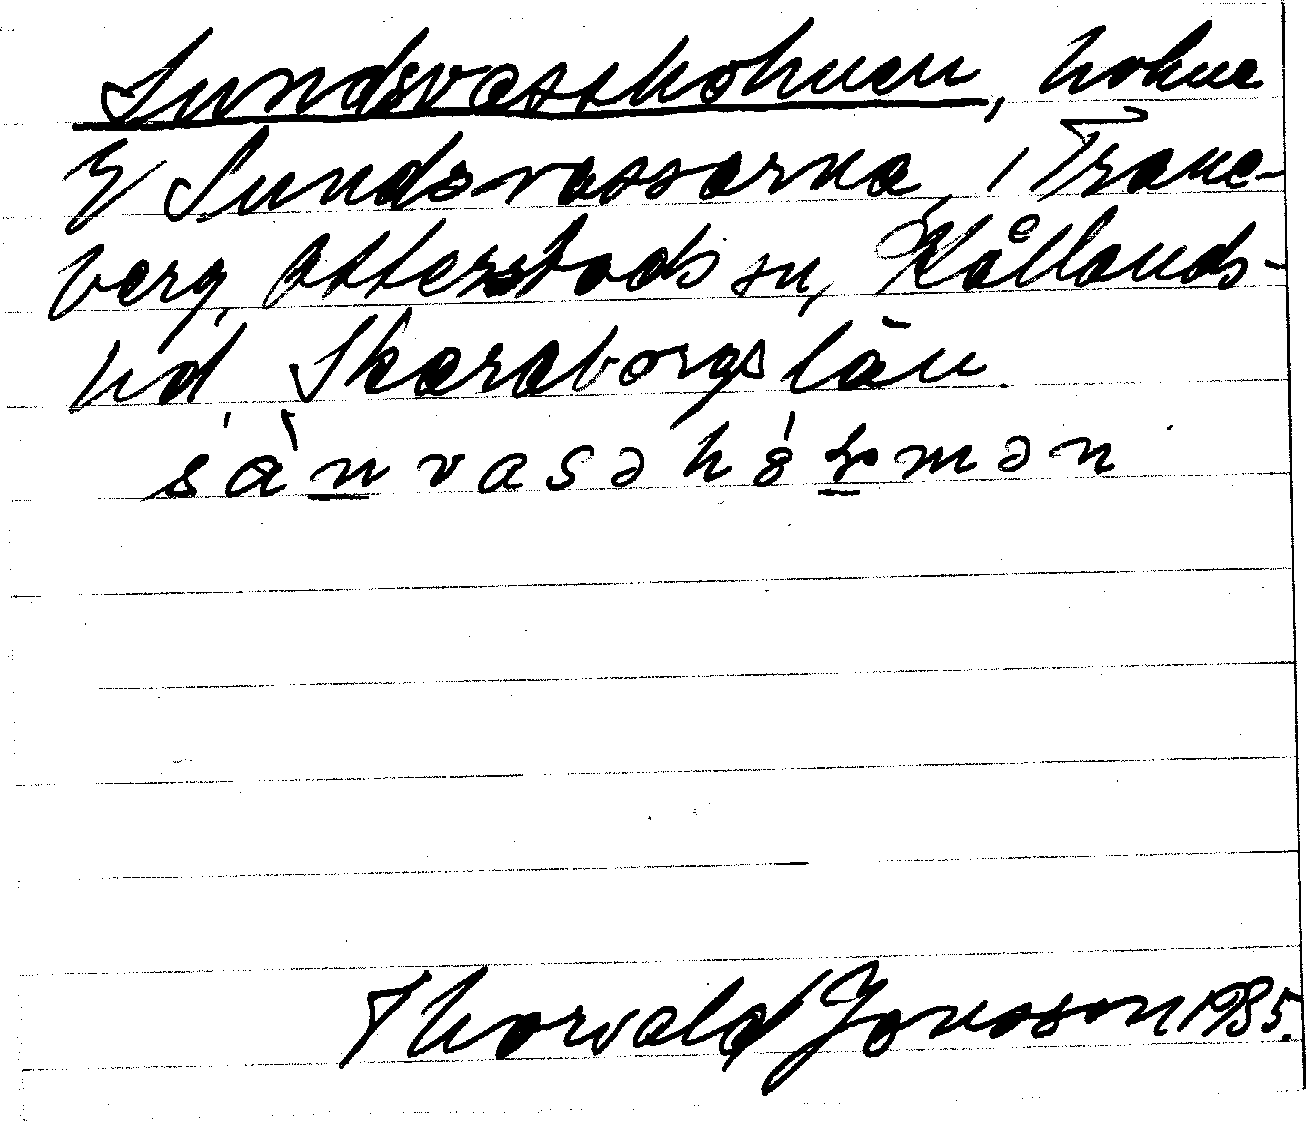 Sundsvasskohuen, hohue
i Sundsvassarna, i Trane-
berg, Otterstads sn, Kållands-
hd Skaraborgs län
Thorvald Jonsson 1985.